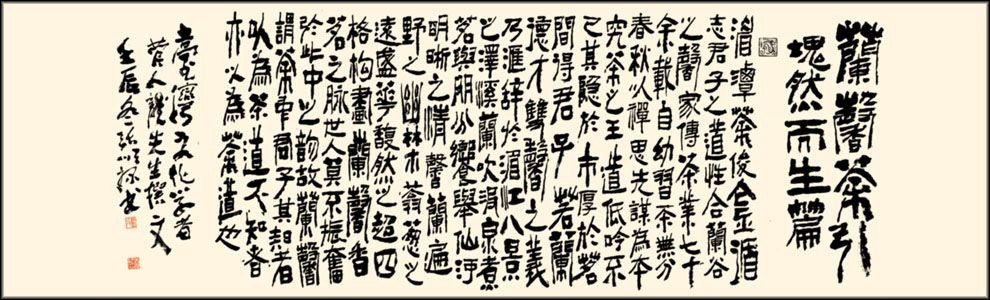 蘭馨茶引
塊然而生篇
湄潭茶俊合至道
志君子之道性合蘭谷
之馨家傳茶業七十
余載自幼習茶無分
春秋以禪思之謀為本
究茶之王道低吟示
已其隱於市厚於茗
間得君子若蘭
德才雙馨之義
乃滙辭於湄江八景
之澤溪蘭吹浪泉煮
茗與朋分饗舉仙河
明晰之清馨蘭遍
野之幽林木蓊蔥之
遠盛華馥然之超四
格构畫蘭馨香
茗之脉世人莫不振奮
於此中之韵故蘭馨
謂茶中君子其契者
以為茶道不知者
亦以為茶道也
臺灣文化学者
菅人龍先生撰文
壬辰冬 書